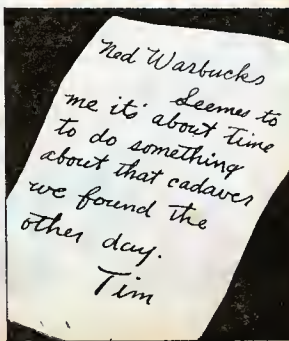 Ned Warbucks
Seemes to
me its' about time
to do something
about that cadaver
we found the
other day.
Tim